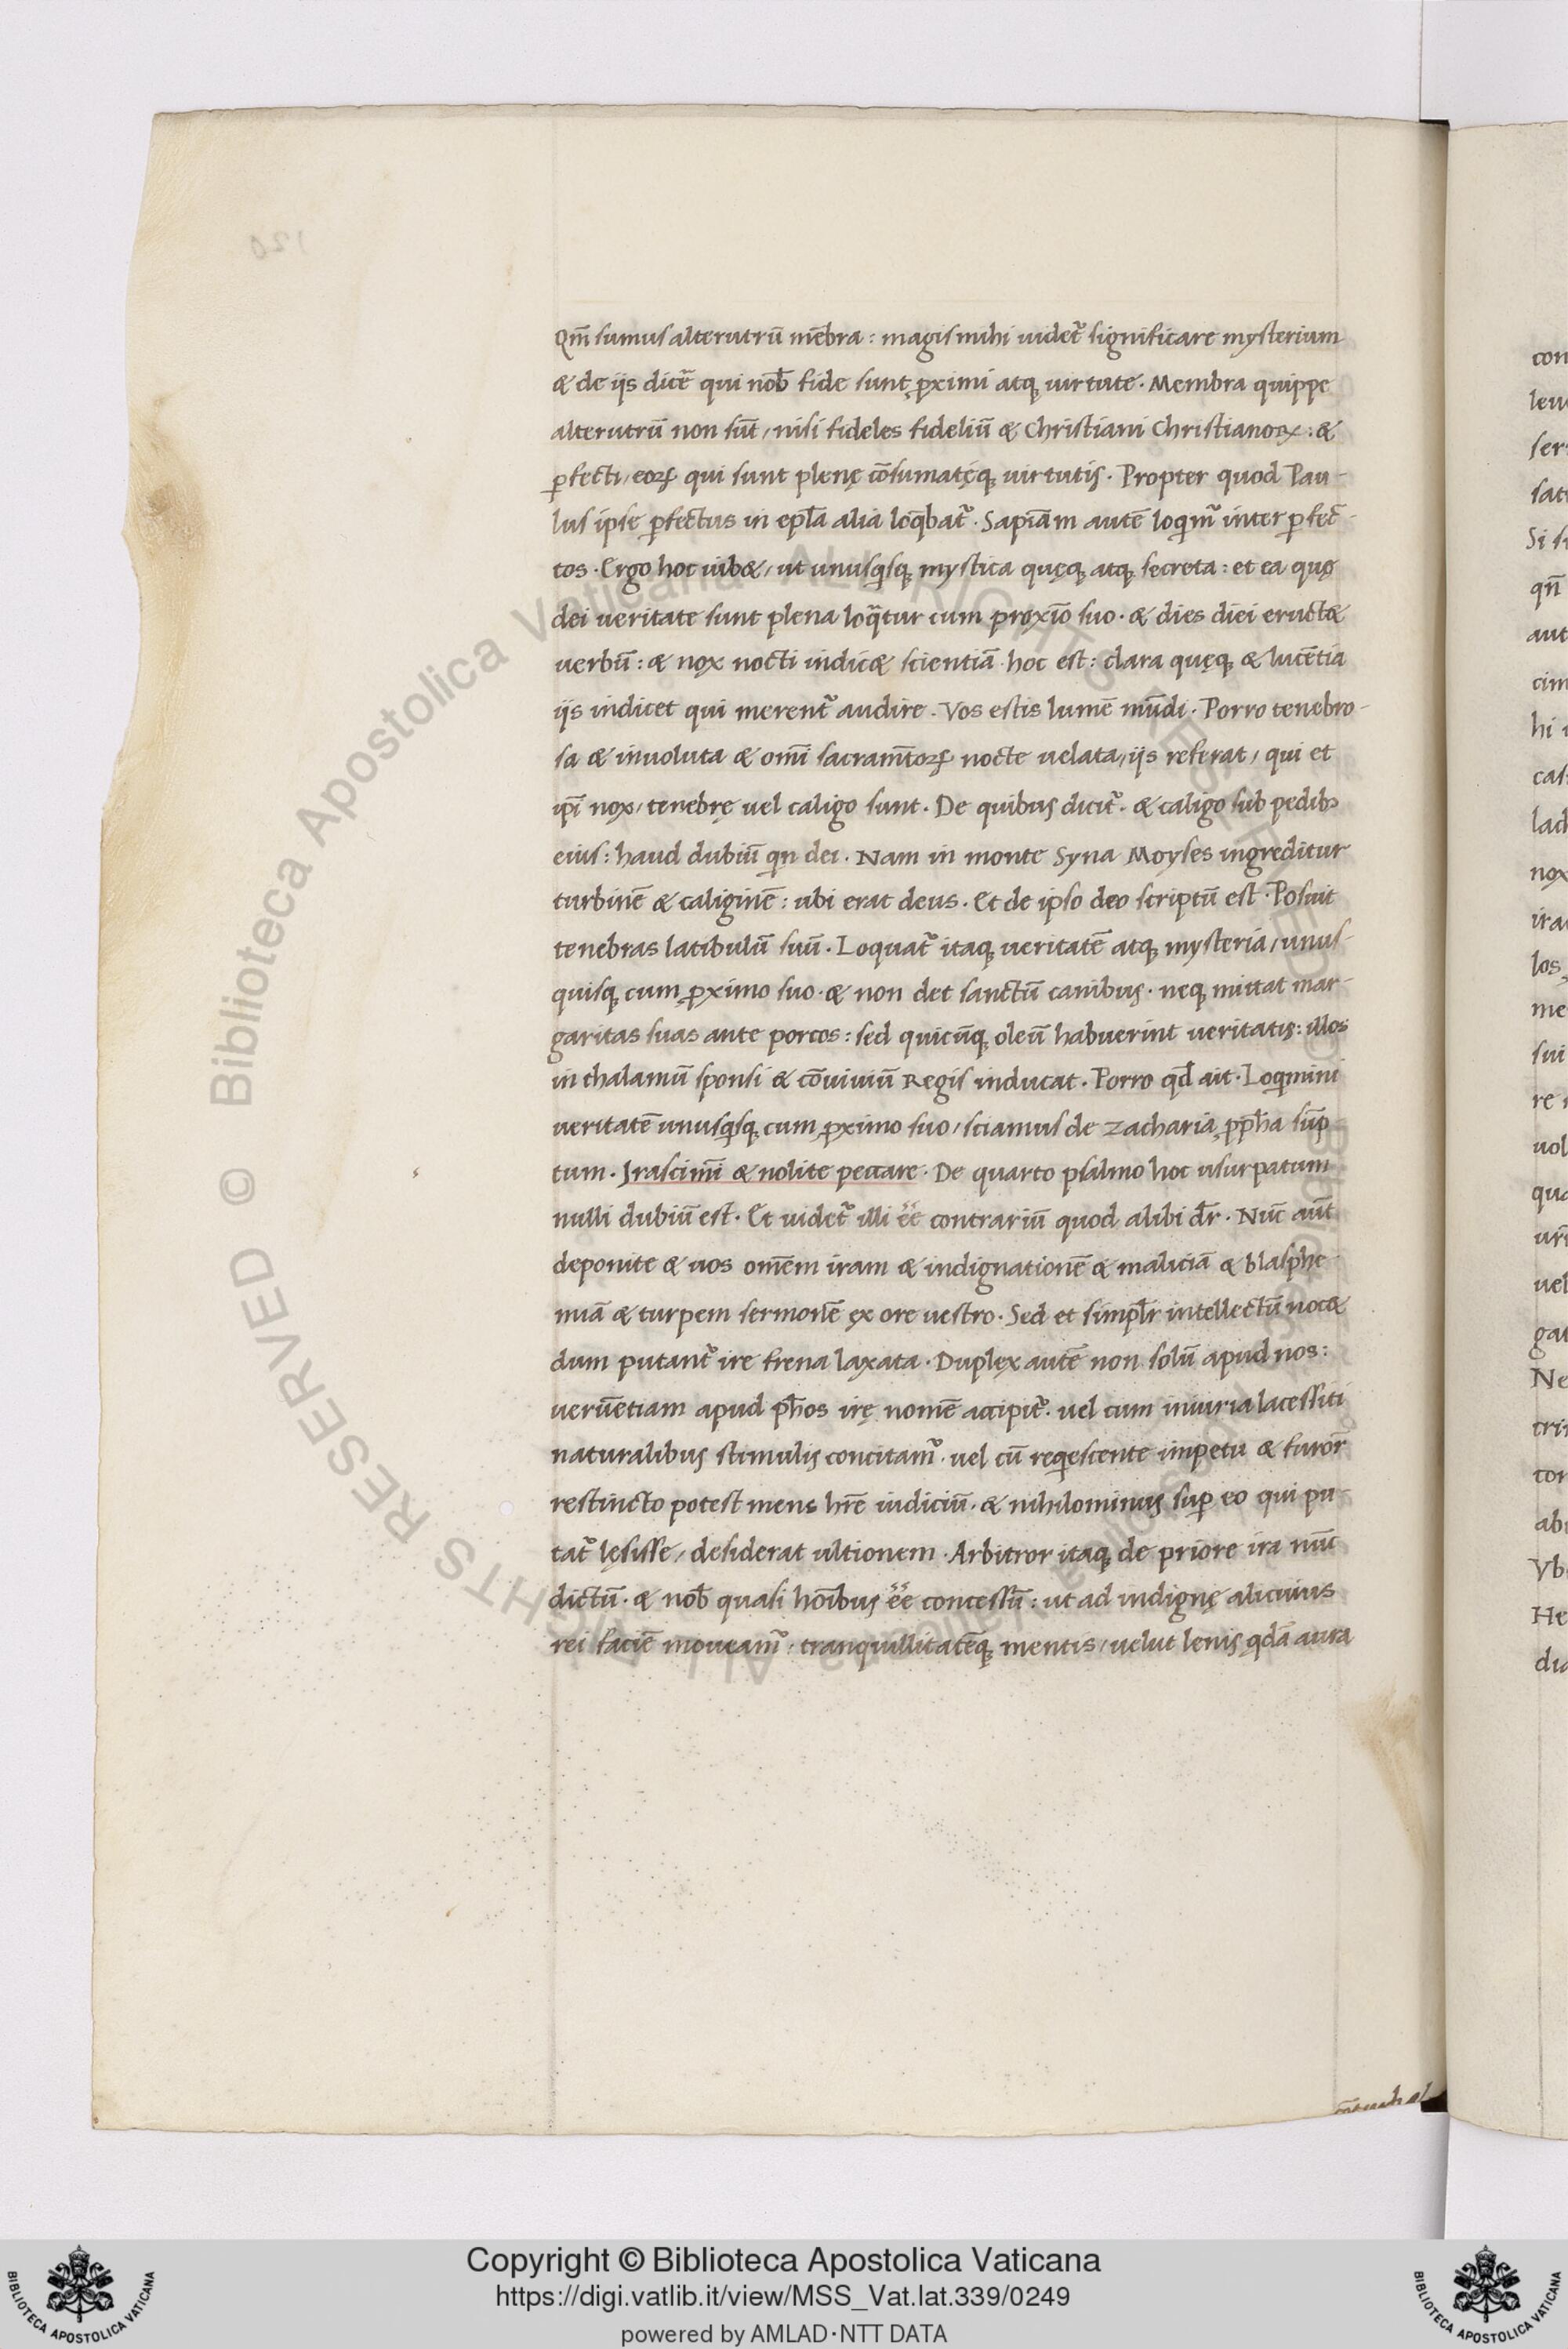 Qm̄ sumus alterutrū mēbra: magis mihi uidet᷑ significare mysterium
& de ijs dicē qui nob̄ fide sunt ꝓximi atq; uirtute. Membra quippe
alterutrū non sūt / nisi fideles fideliū & Christiani Christianoꝝ: &
ꝑfecti / eoꝝ qui sunt plenę cōsumatęq; uirtutis. Propter quod Pau-
lus ipse ꝑfectus in epl̄a alia loq̄bat᷑. Sapiām autē loqim᷑ inter ꝑfec̄-
tos. Ergo hoc iub&, ut unusqisq; mystica quęq; atq; secreta: et ea quę
dei ueritate sunt plena loq̄tur cum proxīo suo. & dies diei eruct&
uerbū: & nox nocti indic& scientiā hoc est: clara quęq; & lucētia
ijs indicet qui merent᷑ audire. Vos estis lumē mūdi. Porro tenebro-
sa & inuoluta & om̄i sacram̄toꝝ nocte uelata / ijs referat / qui et
ip̄i nox / tenebrę uel caligo sunt. De quibus dicit᷑. & caligo sub pedib3
eius: haud dubiū qn dei. Nam in monte Syna Moyses ingreditur
turbinē & caliginē: ubi erat deus. Et de ipso deo scriptū est. Posuit
tenebras latibulū suū. Loquat᷑ itaq; ueritatē atq; mysteria / unus-
quisq; cum ꝓximo suo. & non det sanctū canibus. neq; mittat mar-
garitas suas ante porcos: sed quicūq; oleū habuerint ueritatis: illos
in thalamū sponsi & cōuiuiū Regis inducat. Porro qd̄ ait. Loqimini
ueritatē unusqisq; cum ꝓximo suo / sciamus de Zacharia ꝓph̄a sūp
tum. Irascim̄i & nolite peccare. De quarto psalmo hoc usurpatum
nulli dubiū est. Et uidet᷑ illi ēē contrariū quod alibi dr̄. Nūc aūt
deponite & uos om̄em iram & indignationē & maliciā & blasphe-
miā & turpem sermonē ex ore uestro. Sed et simpl̄r intellectū noc&
dum putant᷑ ire frena laxata. Duplex autē non solū apud nos:
uerūetiam apud ph̄os irę nomē accipit᷑. uel cum iniuria lacessiti
naturalibus stimulis concitam᷑. uel cū reqescente impetu & furor̄
restincto potest mens hr̄e iudiciū. & nihilominus suꝑ eo qui pu-
tat᷑ lęsisse / desiderat ultionem. Arbitror itaq; de priore ira nūc
dictū. & nob̄ quasi hoībus ēē concessū: ut ad indignę alicuius
rei faciē moueam᷑: tranquillitatēq; mentis / uelut lenis qdā aura
con
ser
Si
qn̄
aut
cim
hi
lad
nox
los
me
sui
re
uol
qua
uel
Ne
tor
Vb
He
Copyright © Biblioteca Apostolica Vaticana
https://digi.vatlib.it/view/MSS_Vat.lat.339/0249
powered by AMLAD·NTT DATA
BIBLIOTECA APOSTOLICA VATICANA
BIBLIOTECA APOSTOLICA VATICANA
© Biblioteca Apostolica Vaticana ALL RIGHTS RESERVED